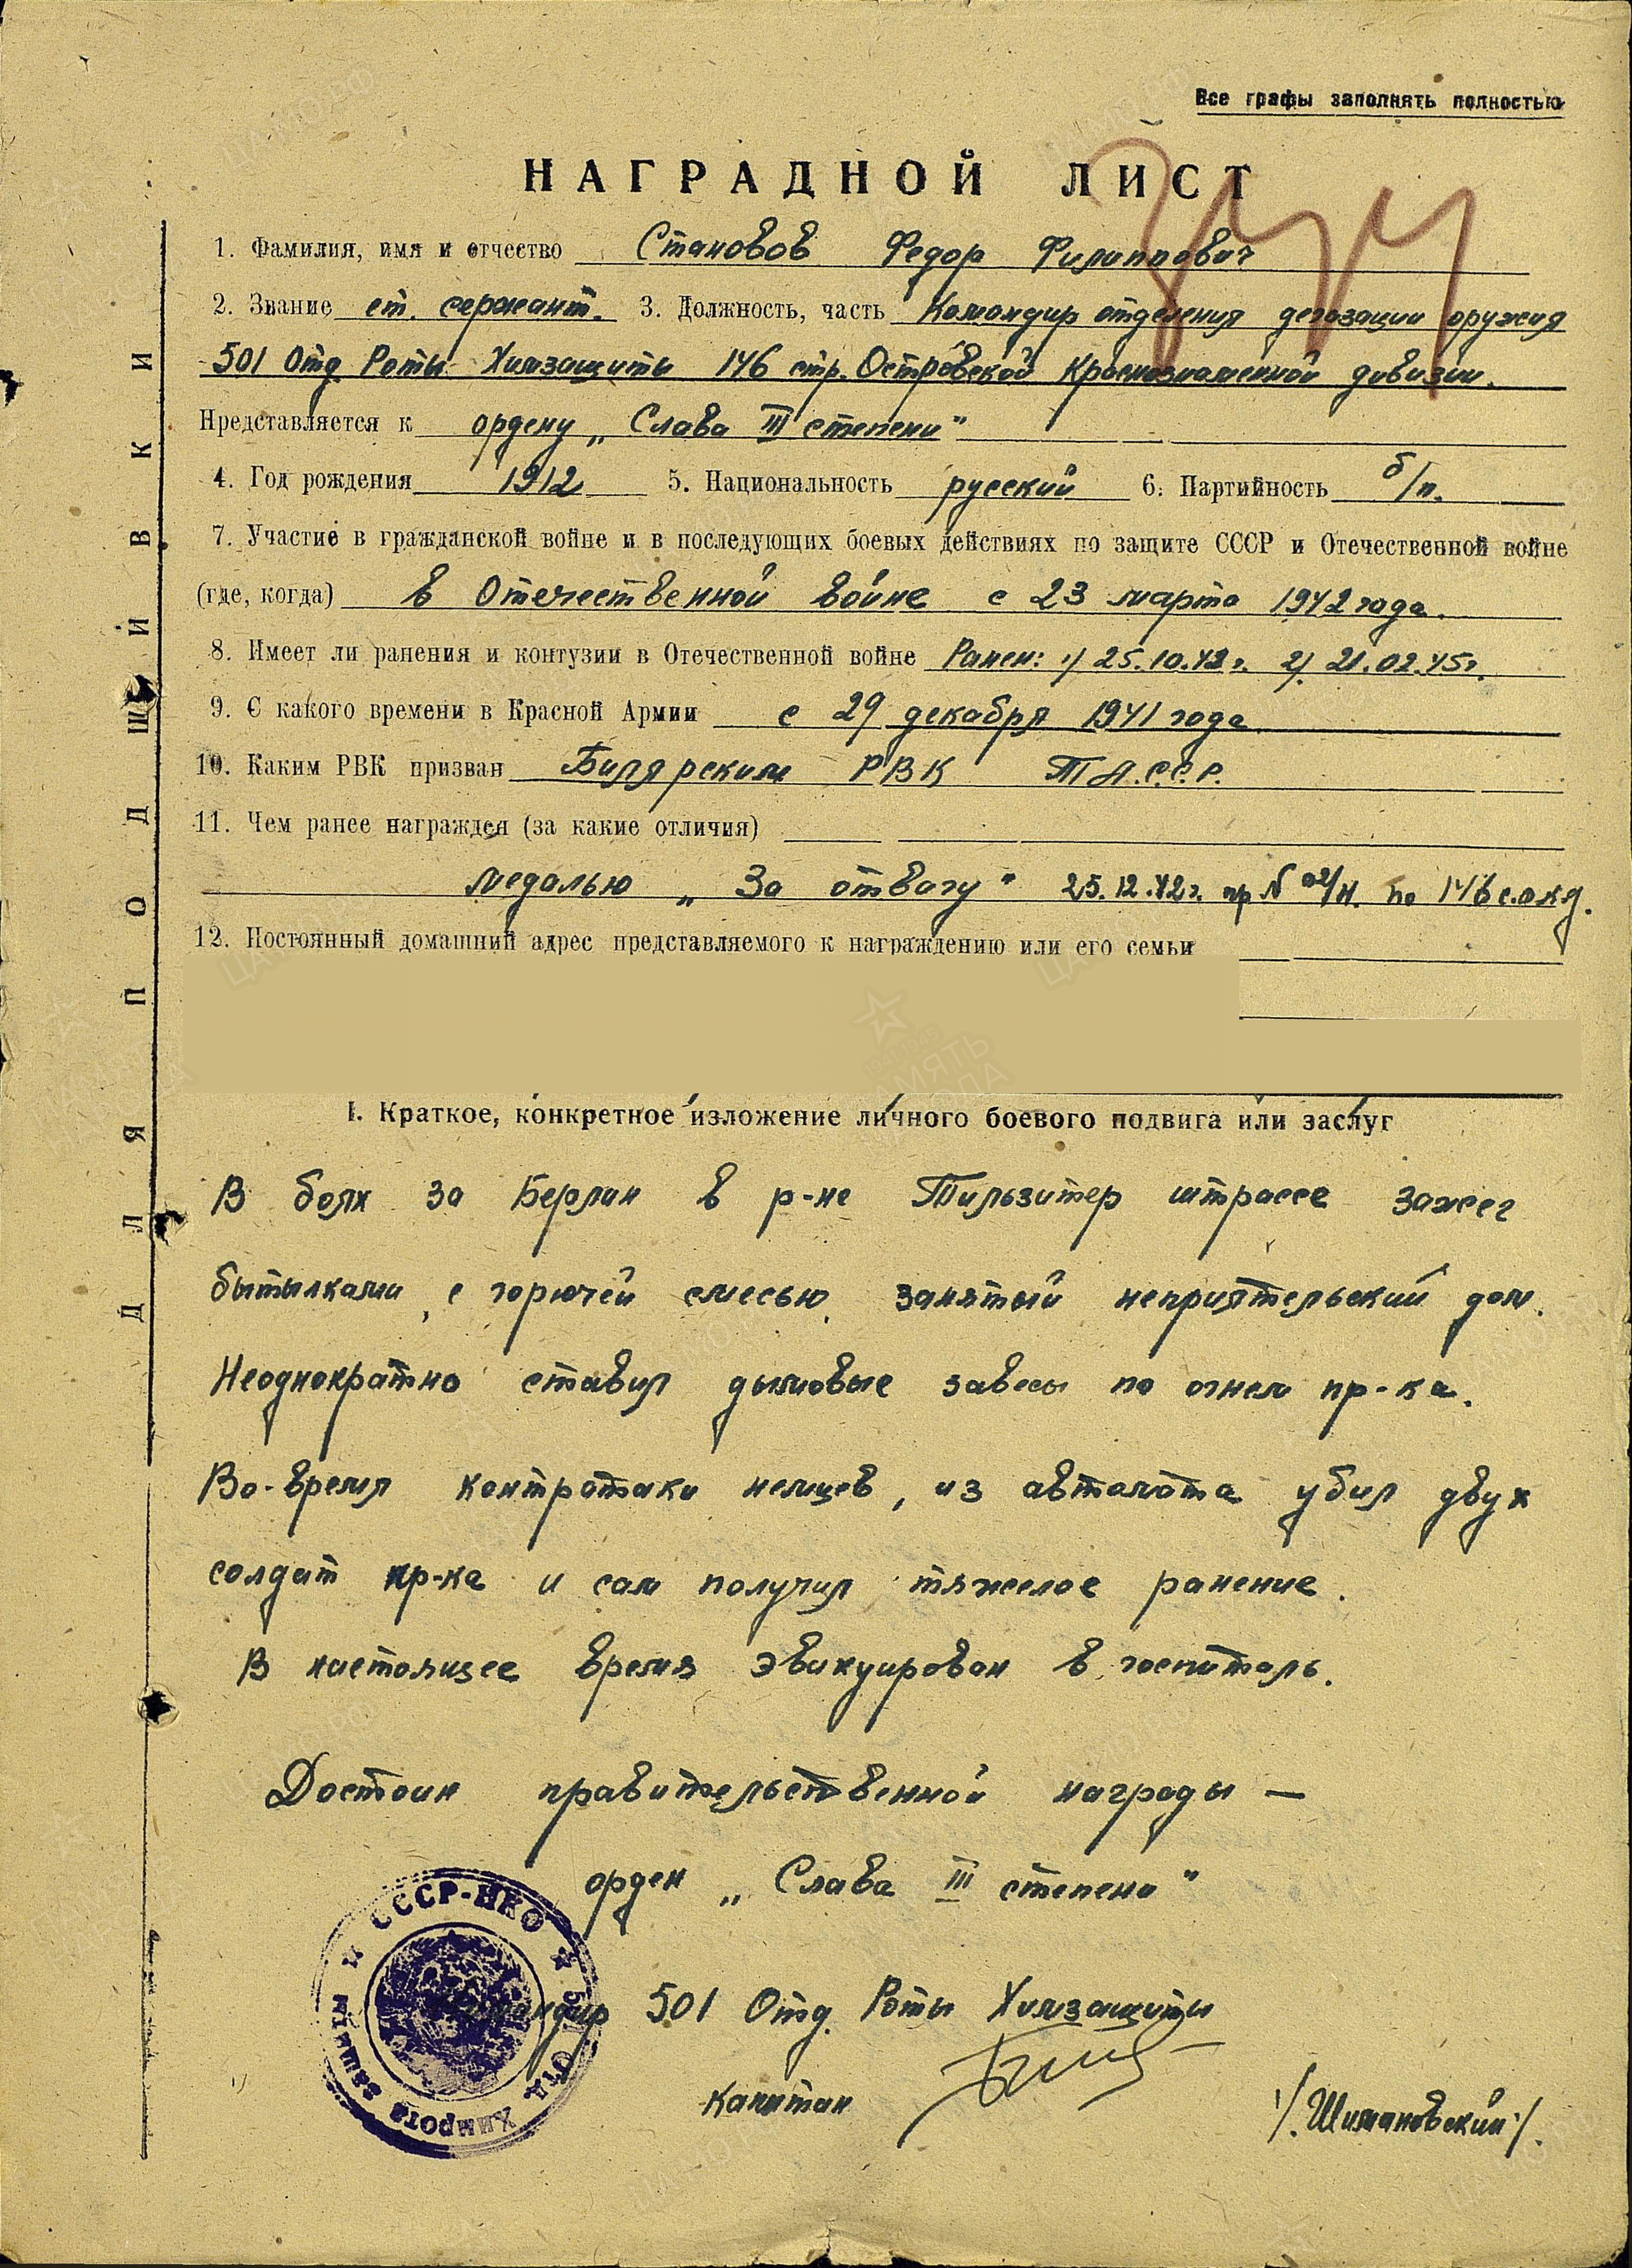 Все графы заполнять полностью
НАГРАДНОЙ ЛИСТ
1. Фамилия, имя и отчество Становов Федор Филиппович
2. Звание ст. сержант. 3. Должность, часть Командир отделения дегазации оружия
501 Отд. Роты Химзащиты 146 стр. Островской Краснознаменной дивизии.
Представляется к ордену „Слава III степени"
4. Год рождения 1912 5. Национальность русский 6. Партийность б/п.
7. Участие в гражданской войне и в последующих боевых действиях по защите СССР и Отечественной войне
(где, когда) в Отечественной войне с 23 марта 1942 года.
8. Имеет ли ранения и контузии в Отечественной войне Ранен: 1) 25.10.42 г. 2) 21.02.45г.
9. С какого времени в Красной Армии с 29 декабря 1941 года
10. Каким РВК призван Билярским РВК ТА.С.С.Р.
11. Чем ранее награжден (за какие отличия)
медалью „За отвагу" 25.12.42г. пр № 02/н. по 146 с.о.к.д.
12. Постоянный домашний адрес представляемого к награждению или его семьи
I. Краткое, конкретное изложение личного боевого подвига или заслуг
В боях за Берлин в р-не Тильзитер штрассе зажег
бытылками, с горючей смесью, занятый неприятельский дом.
Неоднократно ставил дымовые завесы по огнем пр-ка.
Во-время контратаки немцев, из автомата убил двух
солдат пр-ка и сам получил тяжелое ранение.
В настоящее время эвакуирован в госпиталь.
Достоин правительственной награды —
орден „Слава III степени"
Командир 501 Отд. Роты Химзащиты
Капитан
/.Шимановский/.
СССР-НКО
501 ОТД. Химрота защиты
ДЛЯ ПОДШИВКИ